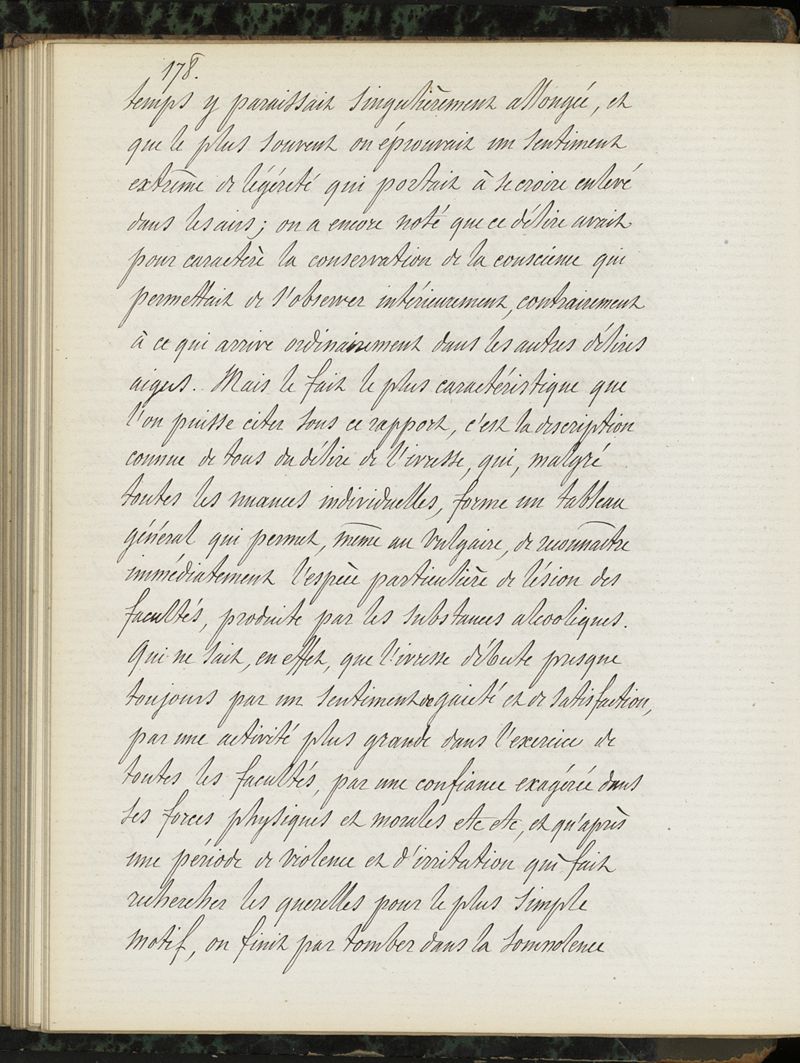 178.
temps y paraissait singulièrement allongée, et
que le plus souvent on éprouvait un sentiment
extrême de légéreté qui portait à se croire enlevé
dans les airs; on a encore noté que ce délire avait
pour caractère la conservation de la conscience qui
permettait de s'observer intérieurement, contrairement
à ce qui arrive ordinairement dans les autres délires
aigus. Mais le fait le plus caractéristique que
l'on puisse citer sous ce rapport, c'est la description
connue de tous du délire de l'ivresse, qui, malgré
toutes les nuances individuelles, forme un tableau
général qui permet, même au vulgaire, de reconnaître
immédiatement l'espèce particulière de lésion des
facultés, produite par les substances alcooliques.
Qui ne sait, en effet, que l'ivresse débute presque
toujours par un sentiment de gaieté et de satisfaction,
par une activité plus grande dans l'exercice de
toutes les facultés, par une confiance exagérée dans
ses forces physiques et morales etc etc, et qu'après
une période de violence et d'irritation qui fait
rechercher les querelles pour le plus simple
motif, on finit par tomber dans la somnolence